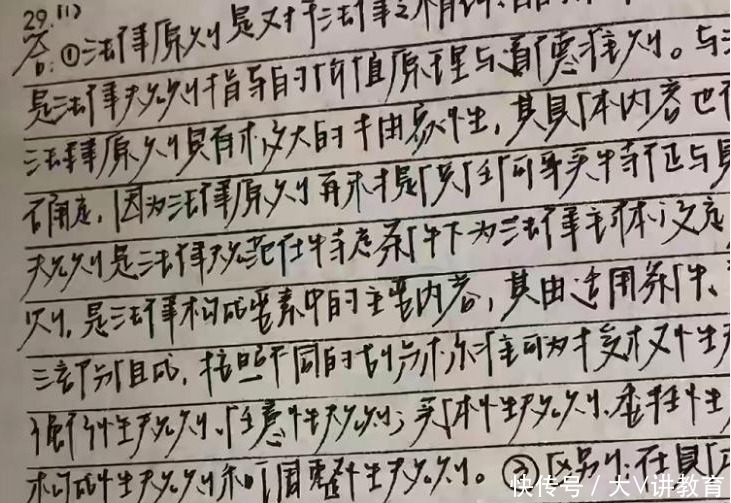 29.(1)
答:①法律原则是对于法律
是法律规则指导的价值原理与道德准则。与
法律原则具有极大的抽象性,其具体内容也
不确定,因为法律原则再
规则是法律规范在特定条件下为法律主体设定
则,是法律构成要素中的主要内容,其由适用条件、
三部分组成,按照不同的划分标准可为授权性
强行性规则、任意性规则;实体性规则、委任性
构成性规则和调整性规则。②区别:在具
快传号/大V讲教育